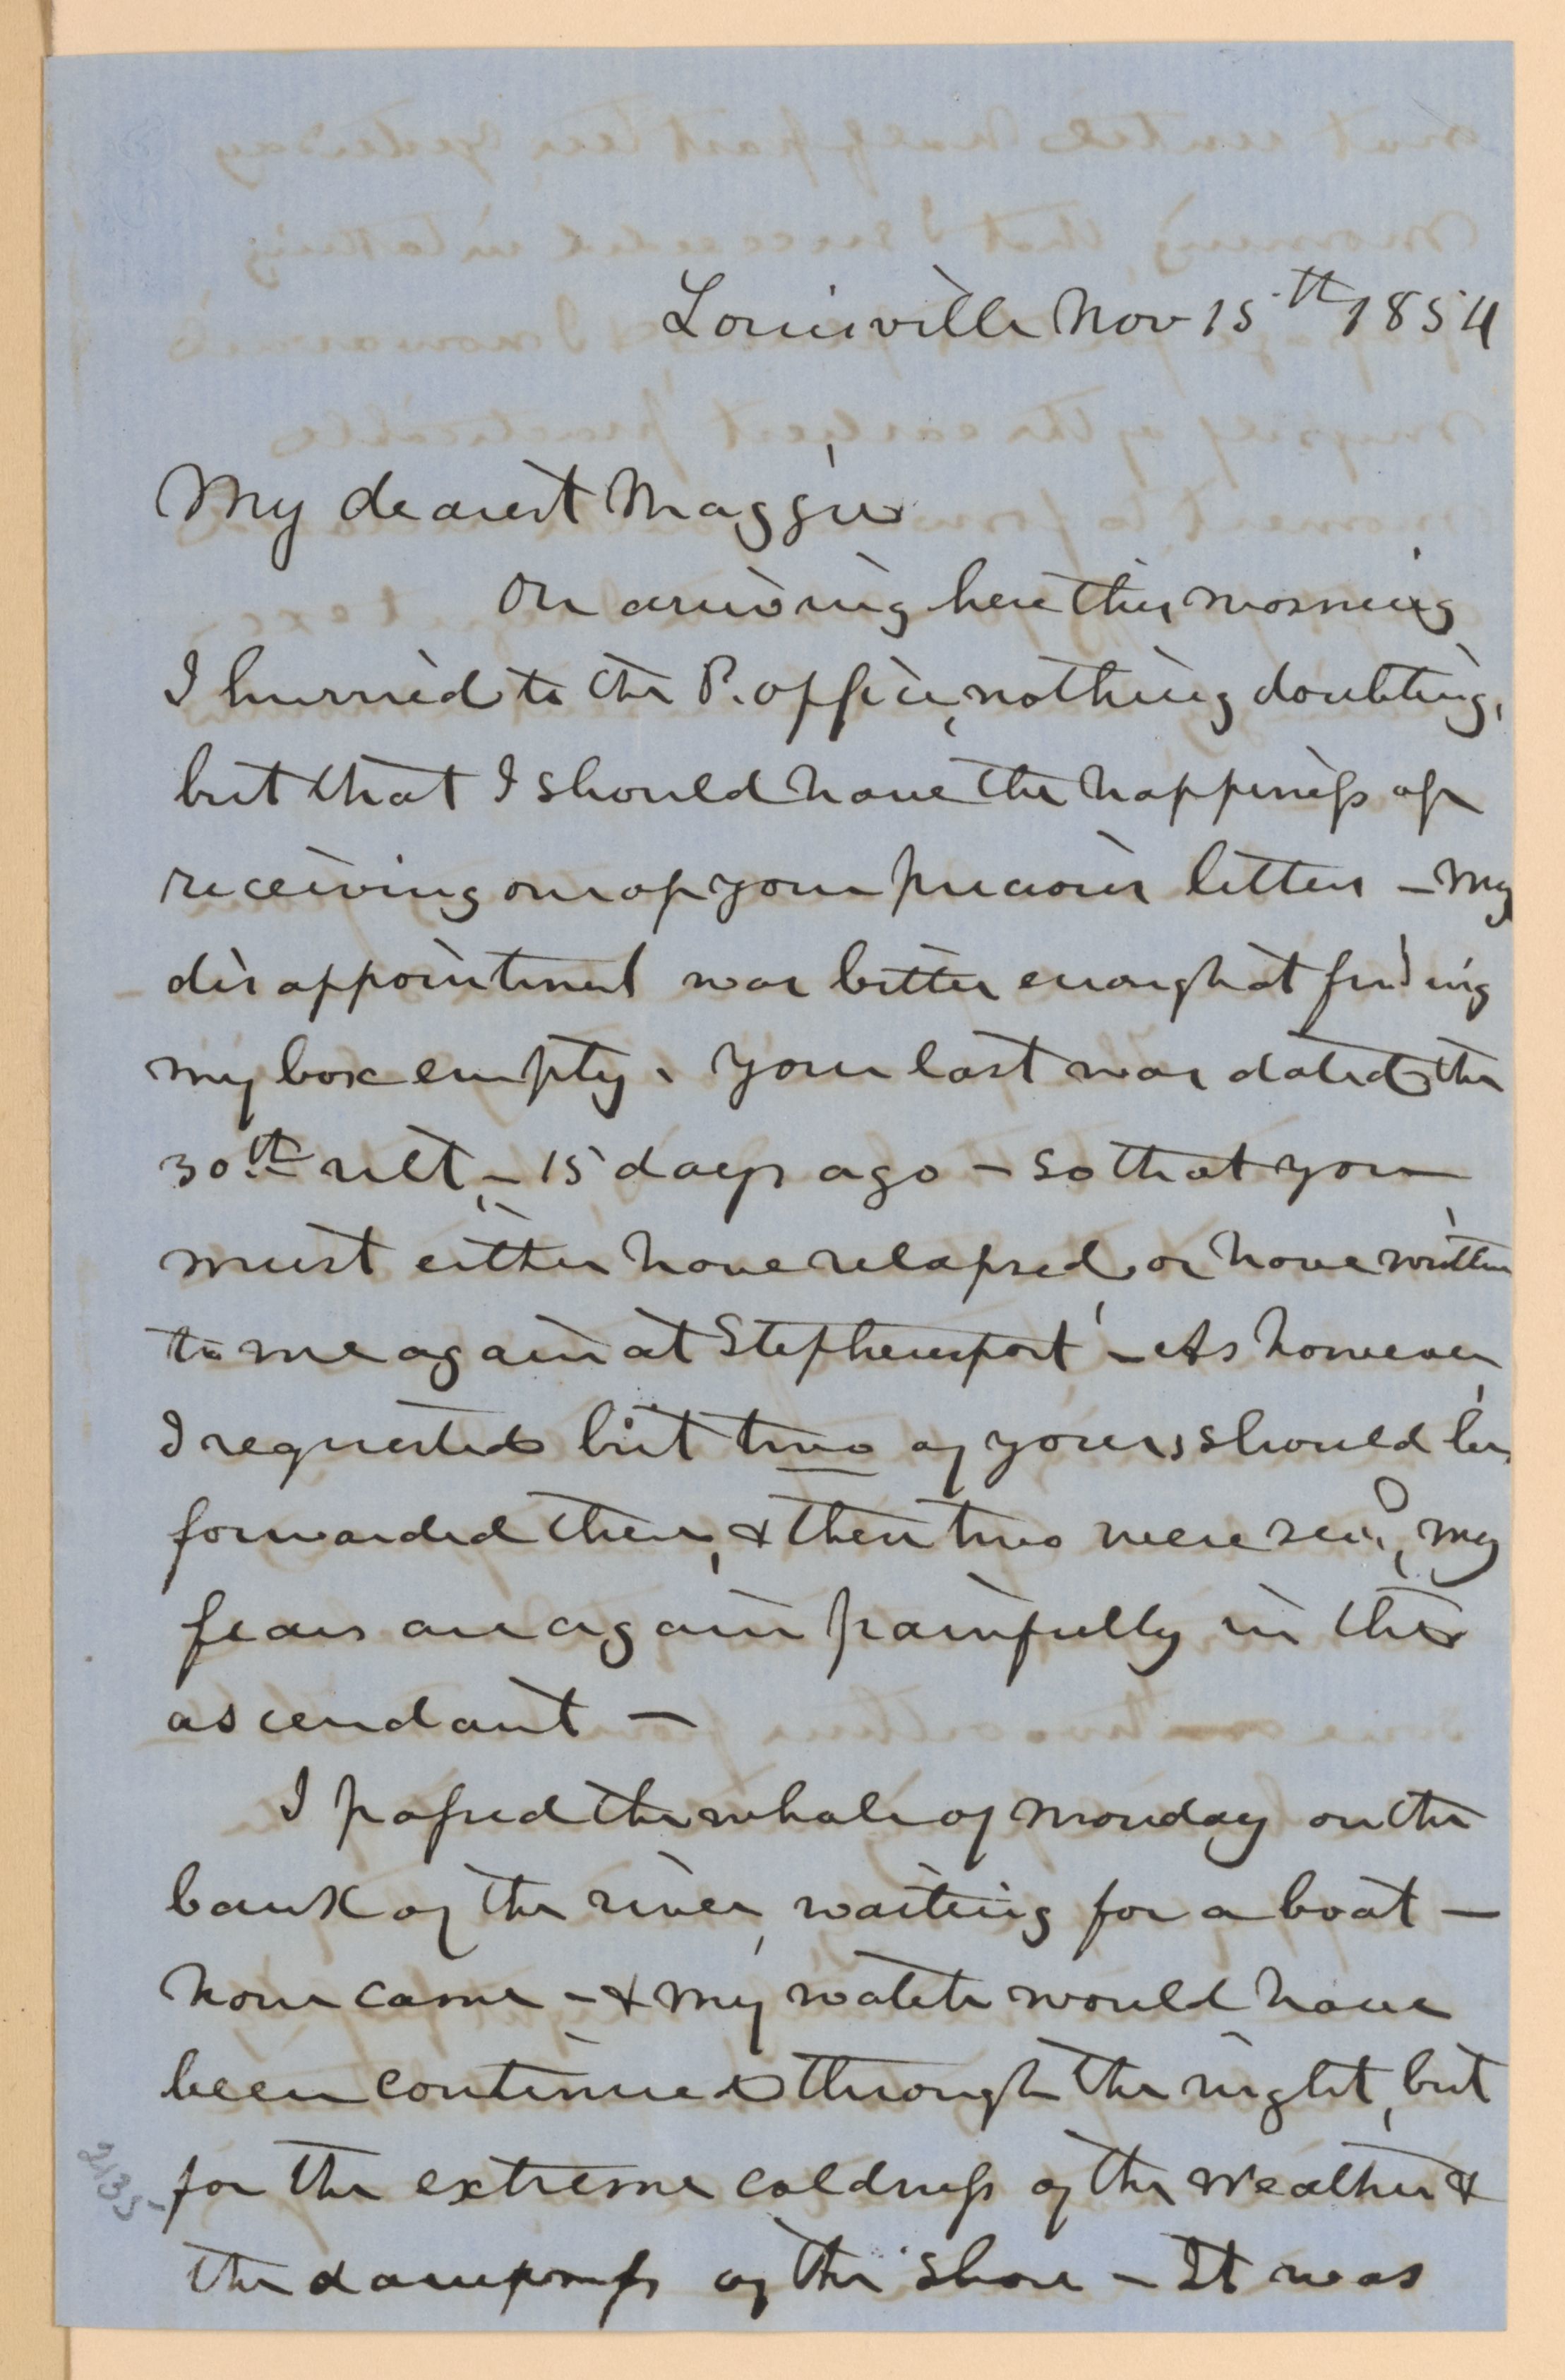 Louisville Nov 15th 1854
My dearest Maggie
On arriving here this morning
I hurried to the P. office, nothing doubting,
but that I should have the happiness of
receiving one of your precious letters – My
disappointment was bitter enough at finding
my box empty. Your last was dated the
30th ult, – 15 days ago – so that you
must either have relapsed, or have written
to me again at Stephensport – As however,
I requested but two of yours, should be
forwarded there, & then two were recd, my
fears are again painfully in the
ascendant –
I passed the whole of Monday on the
bank of the river, waiting for a boat –
None came – & my watch would have
been continued through the night, but
for the extreme coldness of the weather &
the dampness of the shore – It was
2135